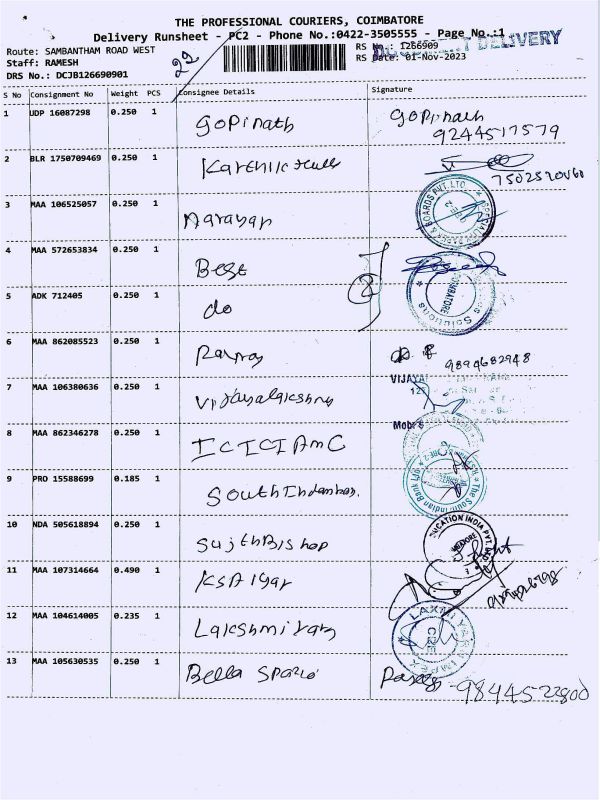 THE PROFESSIONAL COURIERS, COIMBATORE
Delivery Runsheet - PC2 - Phone No.:0422-3505555 - Page No.:1
Route: SAMBANTHAM ROAD WEST RS No.: 1266909
Staff: RAMESH RS Date: 01-Nov-2023
DRS No.: DCJB126690901
DELIVERY
S No Consignment No Weight PCS Consignee Details Signature
1 UDP 16087298 0.250 1 GoPinath GoPinath
9244517579
2 BLR 1750709469 0.250 1
3 MAA 106525057 0.250 1 Narayan
& BOARDS PVT.LTD
4 MAA 572653834 0.250 1 Best
5 ADK 712405 0.250 1 do
COIMBATORE
Solutions
6 MAA 862085523 0.250 1 9894682948
7 MAA 106380636 0.250 1 Vijayalakshmi
VIJAYA
8 MAA 862346278 0.250 1 ICICI AMC
9 PRO 15588699 0.185 1 South Indian
The South Indian Bank
10 NDA 505618894 0.250 1 Sujith Bishop
EDUCATION INDIA PVT.
11 MAA 107314664 0.490 1
12 MAA 104614005 0.235 1 Lakshmi
LAXMI
13 MAA 105630535 0.250 1 Bella Spazio
9844522800